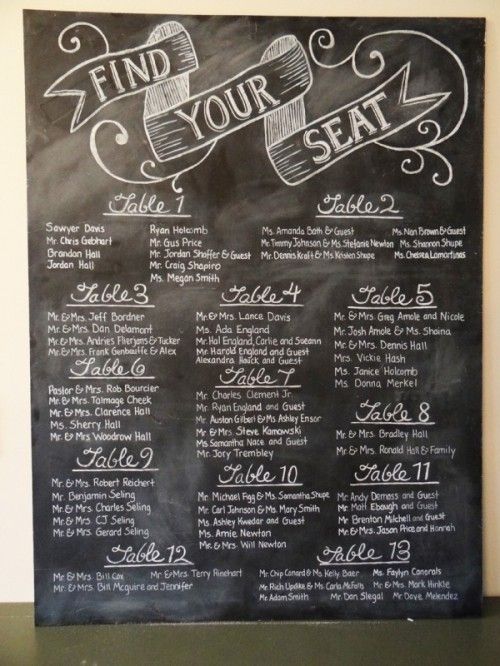 FIND
YOUR
SEAT
Table 1
Sawyer Davis
Mr. Chris Gebhart
Brandon Hall
Jordan Hall
Ryan Holcomb
Mr. Gus Price
Mr. Jordan Shaffer & Guest
Mr. Craig Shapiro
Ms. Megan Smith
Table 2
Ms. Amanda Bath & Guest
Mr. Timmy Johnson & Ms. Stefanie Newton
Mr. Dennis Kraft & Ms. Kristen Shupe
Ms. Nan Brown & Guest
Ms. Shannon Shupe
Ms. Chelsea Lamartinas
Table 3
Mr. & Mrs. Jeff Bordner
Mr. & Mrs. Dan Delamont
Mr. & Mrs. Andries Flierjans & Tucker
Mr. & Mrs. Frank & Alex
Table 4
Mr. & Mrs. Lance Davis
Ms. Ada England
Mr. Hal England, Carlie and Sueann
Mr. Harold England and Guest
Alexandra Haick and Guest
Table 5
Mr. & Mrs. Greg Amole and Nicole
Mr. Josh Amole & Ms. Shaina
Mr. & Mrs. Dennis Hall
Mrs. Vickie Hash
Ms. Janice Holcomb
Ms. Donna Merkel
Table 6
Pastor & Mrs. Rob Bourcier
Mr. & Mrs. Talmage Cheek
Mr. & Mrs. Clarence Hall
Ms. Sherry Hall
Mr & Mrs Woodrow Hall
Table 7
Mr. Charles Clement Jr.
Mr. Ryan England and Guest
Mr. Auston Gilbert & Ms. Ashley Ensor
Mr. & Mrs Steve Karnowski
Ms. Samantha Nace and Guest
Mr. Jory Trembley
Table 8
Mr. & Mrs. Bradley Hall
Mr. & Mrs. Ronald Hall & Family
Table 9
Mr. & Mrs. Robert Reichert
Mr. Benjamin Seling
Mr. & Mrs. Charles Seling
Mr. & Mrs. CJ Seling
Mr. & Mrs. Gerard Seling
Table 10
Mr. Michael Figg & Ms. Samantha Shupe
Mr. Carl Johnson & Ms. Mary Smith
Ms. Ashley Kwedar and Guest
Ms. Amie Newton
Mr. & Mrs. Will Newton
Table 11
Mr. Andy Demass and Guest
Mr. Matt Ebaugh and Guest
Mr. Brenton Mitchell and Guest
Mr. & Mrs. Jason Price and Hannah
Table 12
Mr. & Ms. Bill Cox
Mr. & Mrs. Terry Rinehart
Mr. & Mrs. Bill Mcguire and Jennifer
Table 13
Mr. Chip Conard & Ms. Kelly Baer
Ms. Faylyn Canorals
Mr. Rich Updike & Ms. Carla McFalls
Mr. & Mrs. Mark Hinkle
Mr. Adam Smith
Mr. Dan Slegal
Mr. Dave Melendez